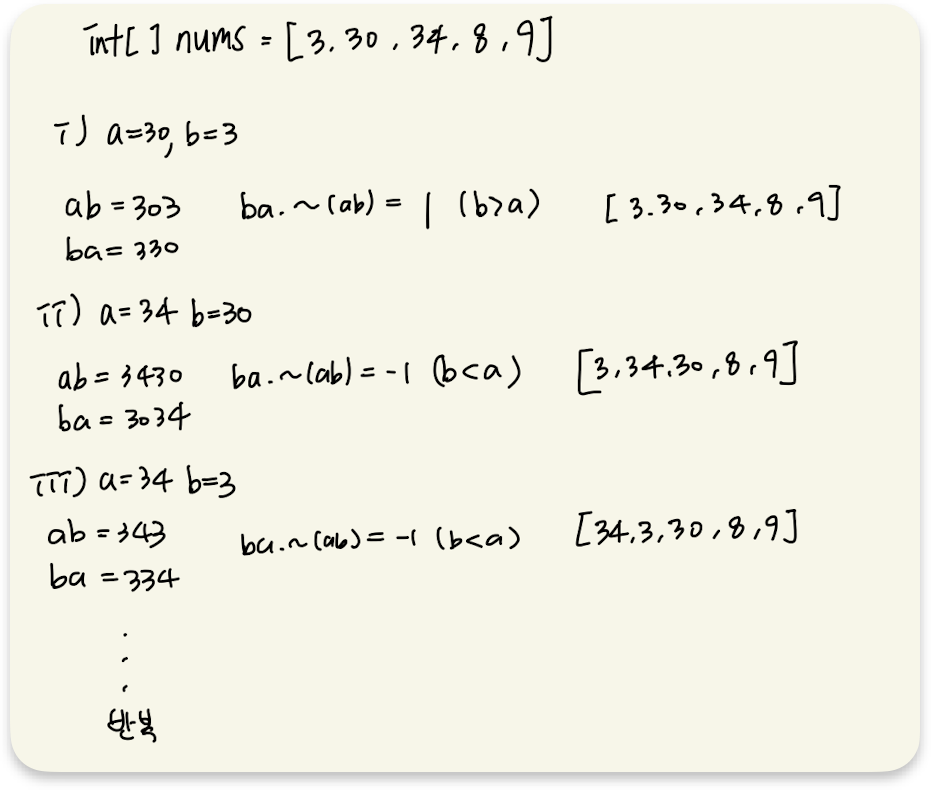 int[] nums = [3. 30 , 34, 8 , 9]
i) a=30, b=3
ab = 303 ba.~(ab) = 1 (b>a) [3.30, 34, 8, 9]
ba = 330
ii) a=34 b=30
ab = 3430 ba.~(ab) = -1 (b<a) [3, 34.30, 8, 9]
ba = 3034
iii) a=34 b=3
ab = 343 ba.~(ab) = -1 (b<a) [34.3, 30, 8, 9]
ba = 334
.
.
.
반복